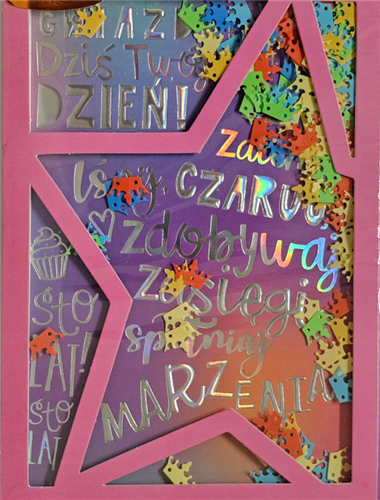 Dziś Twój
DZIEŃ!
lśnij, CZARUJ,
zdobywaj
zasięgi
spełniaj
MARZENIA
STO
LAT!
STO
LAT